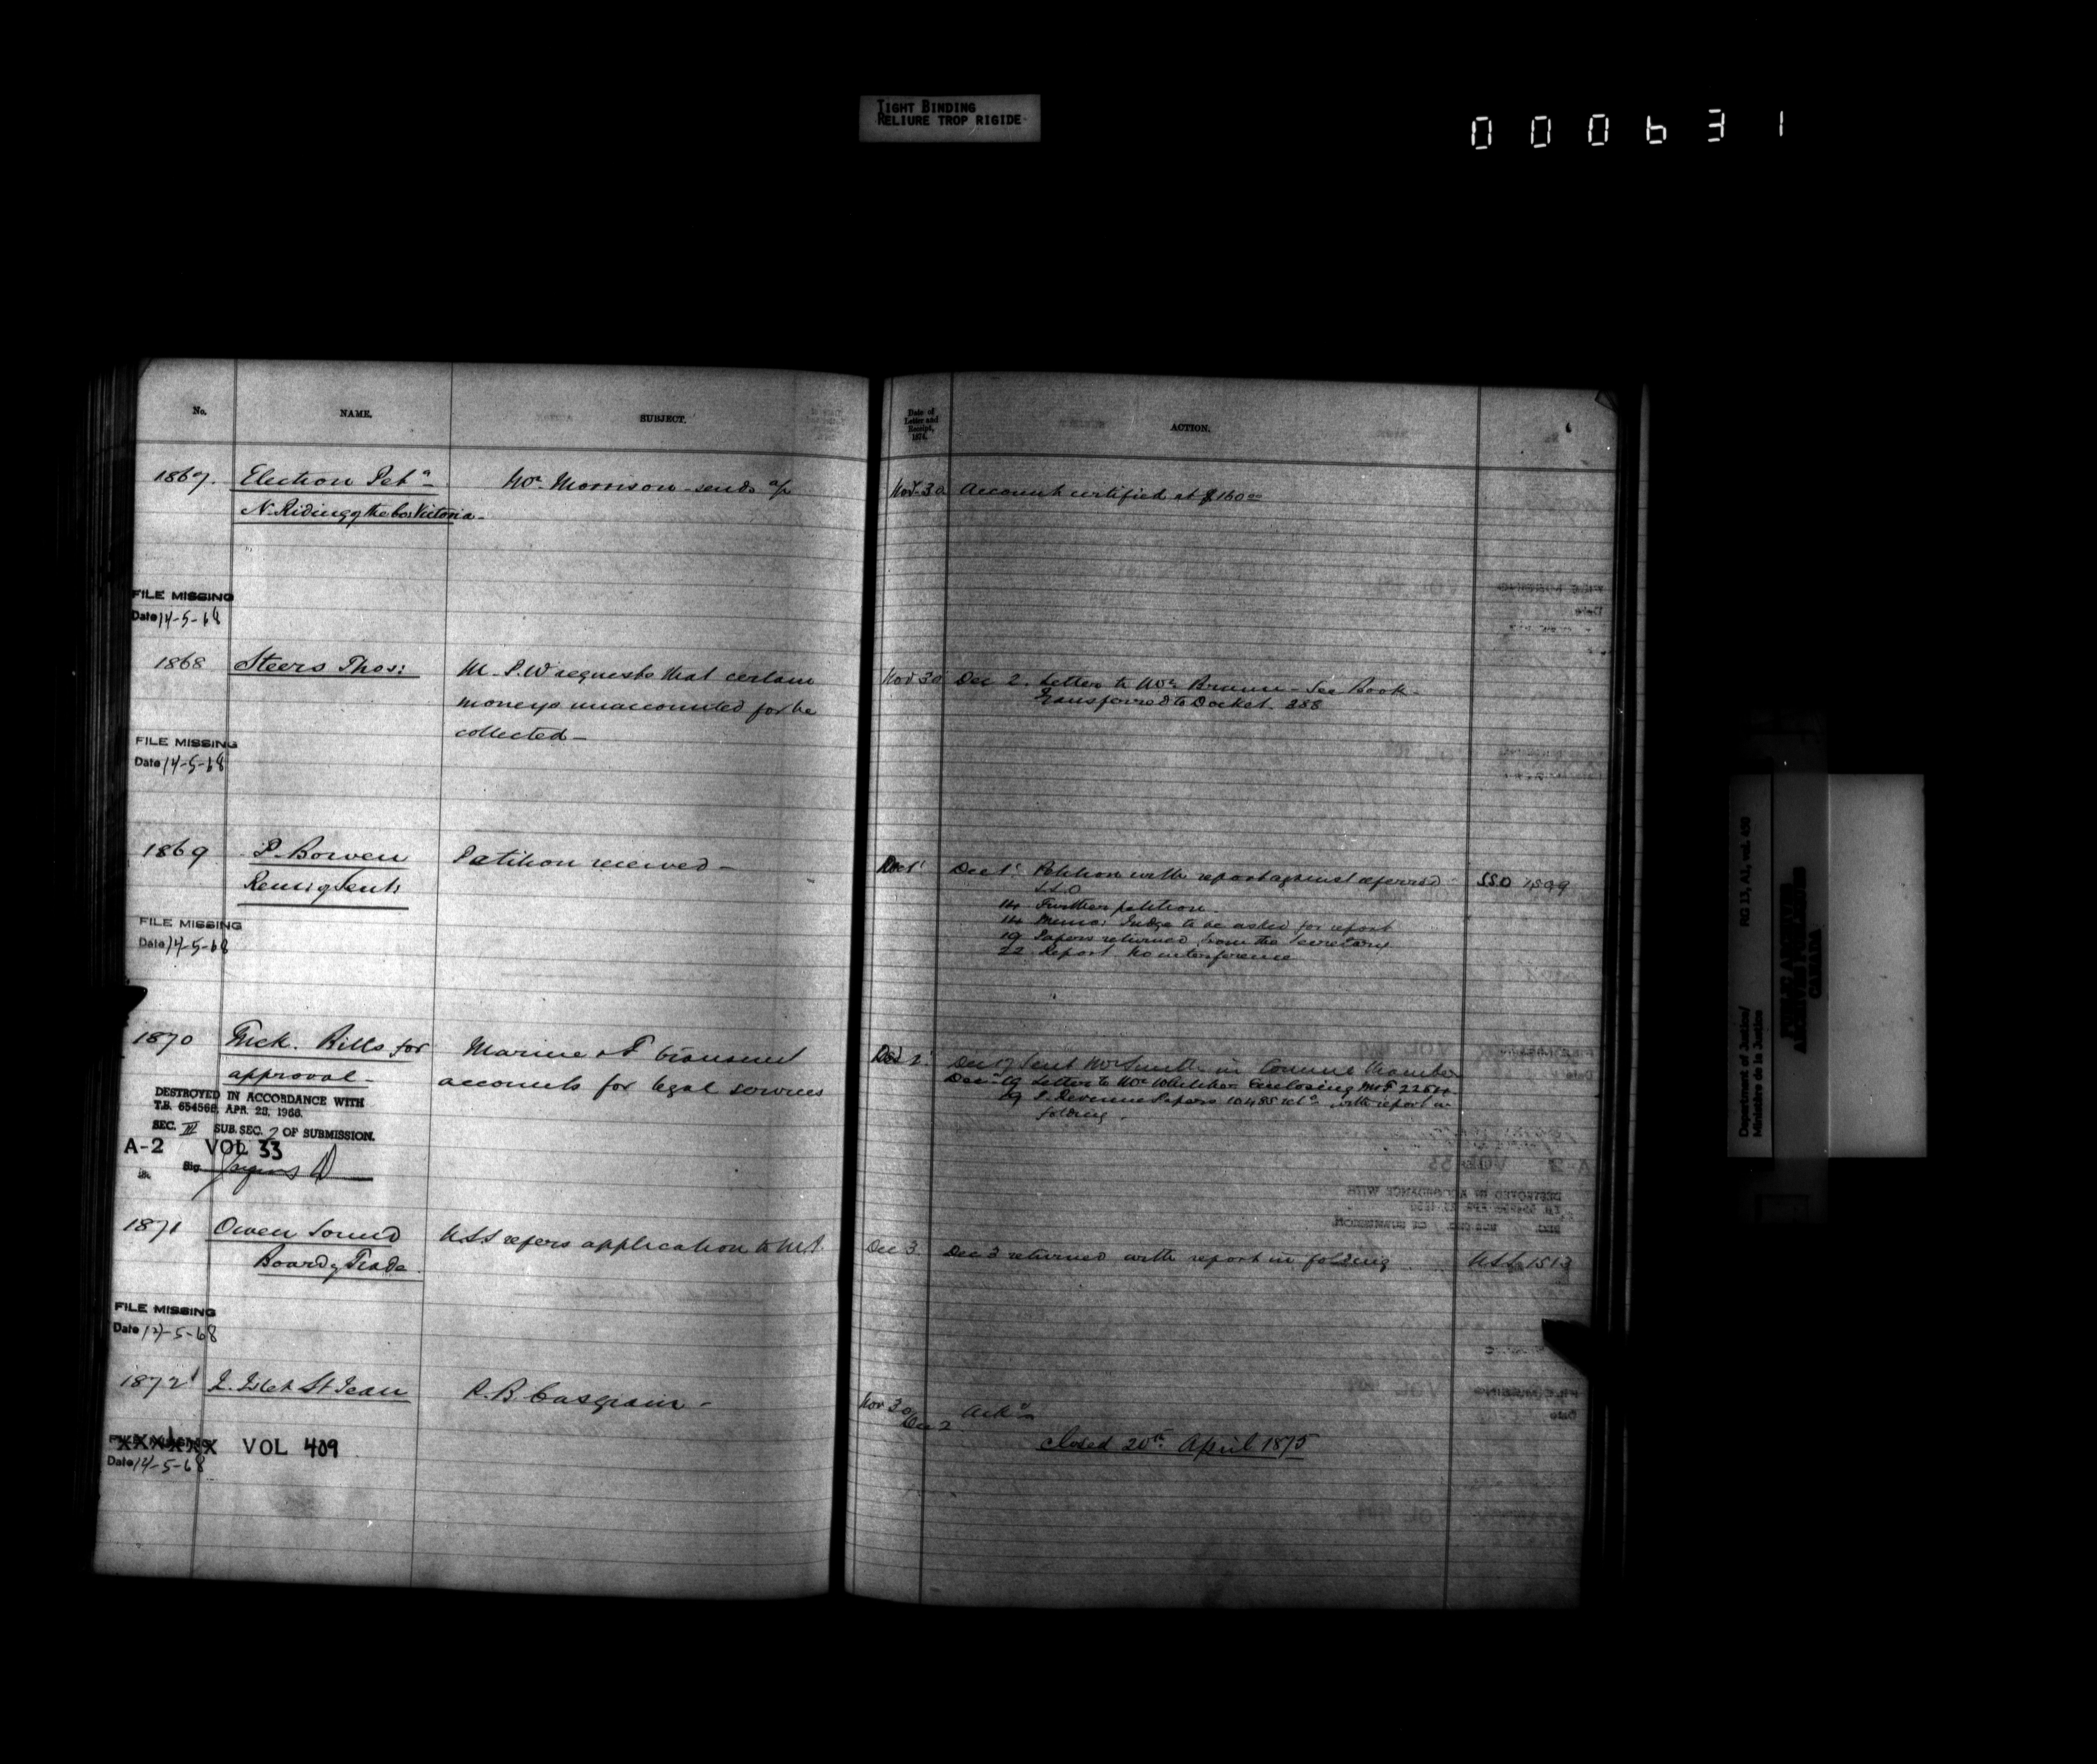 TIGHT BINDING
RELIURE TROP RIGIDE
000631
No.
NAME.
SUBJECT.
Date of Letter and Receipt, 1874.
ACTION.
1867. Election Petn
N. Riding of the Co. Victoria.
Wm. Morrison sends a/c
Nov. 30 Account certified at $160 00
FILE MISSING
Date 14-5-68
1868 Steers Thos:
M. P. W requests that certain
moneys unaccounted for be
collected -
Nov 30 Dec 2. Letter to Mr. Brunn - See Book
Transferred to Docket 388
FILE MISSING
Date 14-5-68
1869 P. Bowen
Remis of Sent:
Petition received -
Dec 1 Dec 1 Petition with report against referred SSO 1599
S.S.O
14 Further petition.
14 Memo: Judge to be asked for report
19 Papers returned from the Secretary
22 Report no interference
FILE MISSING
Date 14-5-68
1870 Bills for
approval -
Marine & F transmit
accounts for legal services
Dec 2 Dec 17 Sent Mr Smith in Chamber
Dec 19 Letter to Mr. Whitcher enclosing
Papers 10485 with report in
folding.
DESTROYED IN ACCORDANCE WITH
T.B. 654568, APR. 28, 1966.
SEC. III SUB. SEC. 2 OF SUBMISSION.
A-2 VOL 33
Sig
1871 Owen Sound
Board of Trade.
U.S.S refers application to M.J.
Dec 3 Dec 3 returned with report in folding U.S.S. 1513
FILE MISSING
Date 14-5-68
1872 L'Islet St Jean
P. B. Casgrain -
Nov 30
Dec 2 Ackn
closed 20th April 1875
FILE MISSING XXXXXX VOL 409
Date 14-5-68
Department of Justice/
Ministère de la Justice
RG 13, A1, vol. 456
CANADA